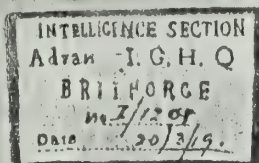 INTELLIGENCE SECTION
Advan I. G. H. Q
BRITFORCE
No I/1208
Date 20/3/19.